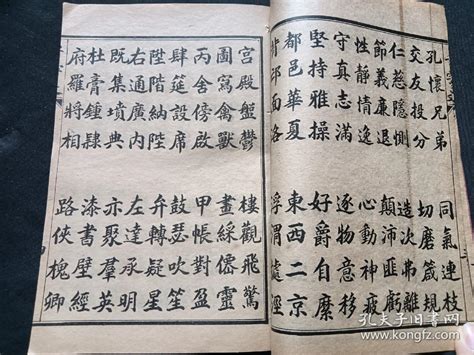 孔懷兄弟 同氣連枝
交友投分 切磨箴規
仁慈隱惻 造次弗離
節義廉退 顛沛匪虧
性靜情逸 心動神疲
守真志滿 逐物意移
堅持雅操 好爵自縻
都邑華夏 東西二京
背邙面洛 浮渭涇
宮殿盤鬱 樓觀飛驚
圖寫禽獸 畫綵僊靈
丙舍傍啟 甲帳對
肆筵設席 鼓瑟吹笙
陞階納陛 弁轉疑星
右通廣內 左達承明
既集墳典 亦聚群英
杜鍾隸 漆書壁經
府羅將相 路俠槐卿
孔夫子旧书网
kongfz.com